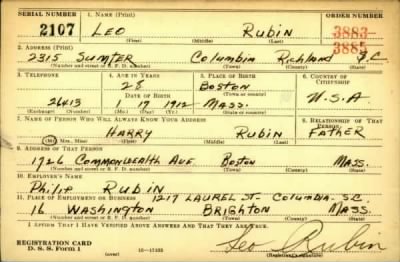 SERIAL NUMBER 1. NAME (Print) ORDER NUMBER
2107 LEO RUBIN 3883
(First) (Middle) (Last) 3885
2. ADDRESS (Print)
2315 SUMTER Columbia Richland S.C.
(Number and street or R. F. D. number) (Town) (County) (State)
3. TELEPHONE 4. AGE IN YEARS 5. PLACE OF BIRTH 6. COUNTRY OF CITIZENSHIP
28 BOSTON
DATE OF BIRTH (Town or county)
26413 1 17 1912 MASS. U.S.A
(Exchange) (Number) (Mo.) (Day) (Yr.) (State or country)
7. NAME OF PERSON WHO WILL ALWAYS KNOW YOUR ADDRESS 8. RELATIONSHIP OF THAT PERSON
HARRY RUBIN FATHER
(Mr., Mrs., Miss) (First) (Middle) (Last)
9. ADDRESS OF THAT PERSON
1926 COMMONWEALTH AVE. BOSTON MASS.
(Number and street or R. F. D. number) (Town) (County) (State)
10. EMPLOYER'S NAME
Philip RUBIN
11. PLACE OF EMPLOYMENT OR BUSINESS 1217 LAUREL ST- Columbia- S.C.
16 WASHINGTON BRIGHTON MASS
(Number and street or R. F. D. number) (Town) (County) (State)
I AFFIRM THAT I HAVE VERIFIED ABOVE ANSWERS AND THAT THEY ARE TRUE.
REGISTRATION CARD
D. S. S. Form 1 (over) 16-17105 Leo Rubin
(Registrant's signature)